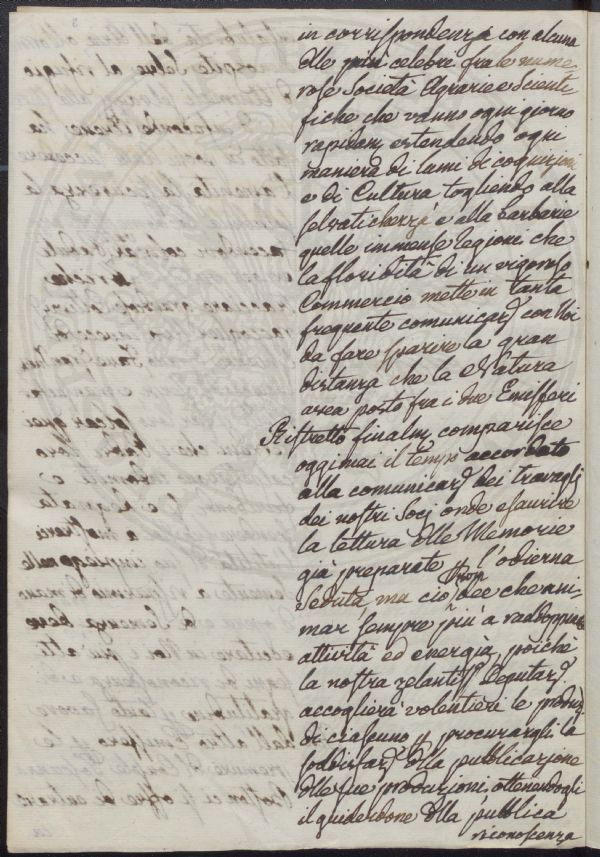 in corrispondenza con alcuna
dlle più celebri fra le nume
rose Società Agrarie e Scienti
fiche che vanno ogni giorno
rapidam. estendendo ogni
maniera di lumi di cognizioni
e di Cultura togliendo alla
selvatichezza e alla barbarie
quelle immense legioni che
la floridità di un vigoroso
Commercio mette in tanta
frequente comunicaz. con Noi
da fare sparire la gran
distanza che la Natura
avea posto fra i due Emisferi
Ristretto finalm. comparisce
oggimai il tempo accordato
alla comunicaz. dei travagli
dei nostri Socj onde esaurire
la lettura dlle Memorie
già preparate p. l'odierna
Seduta ma ciò non dee che ani-
mar sempre più a raddoppiare
attività ed energia, poiche
la nostra zelantiss. Deputaz.
accoglierà volentieri le produz.
di ciascuno p. procurargli la
soddisfaz. dlla pubblicazione
dlle sue produzioni, ottenendogli
il guiderdone dlla pubblica
riconoscenza